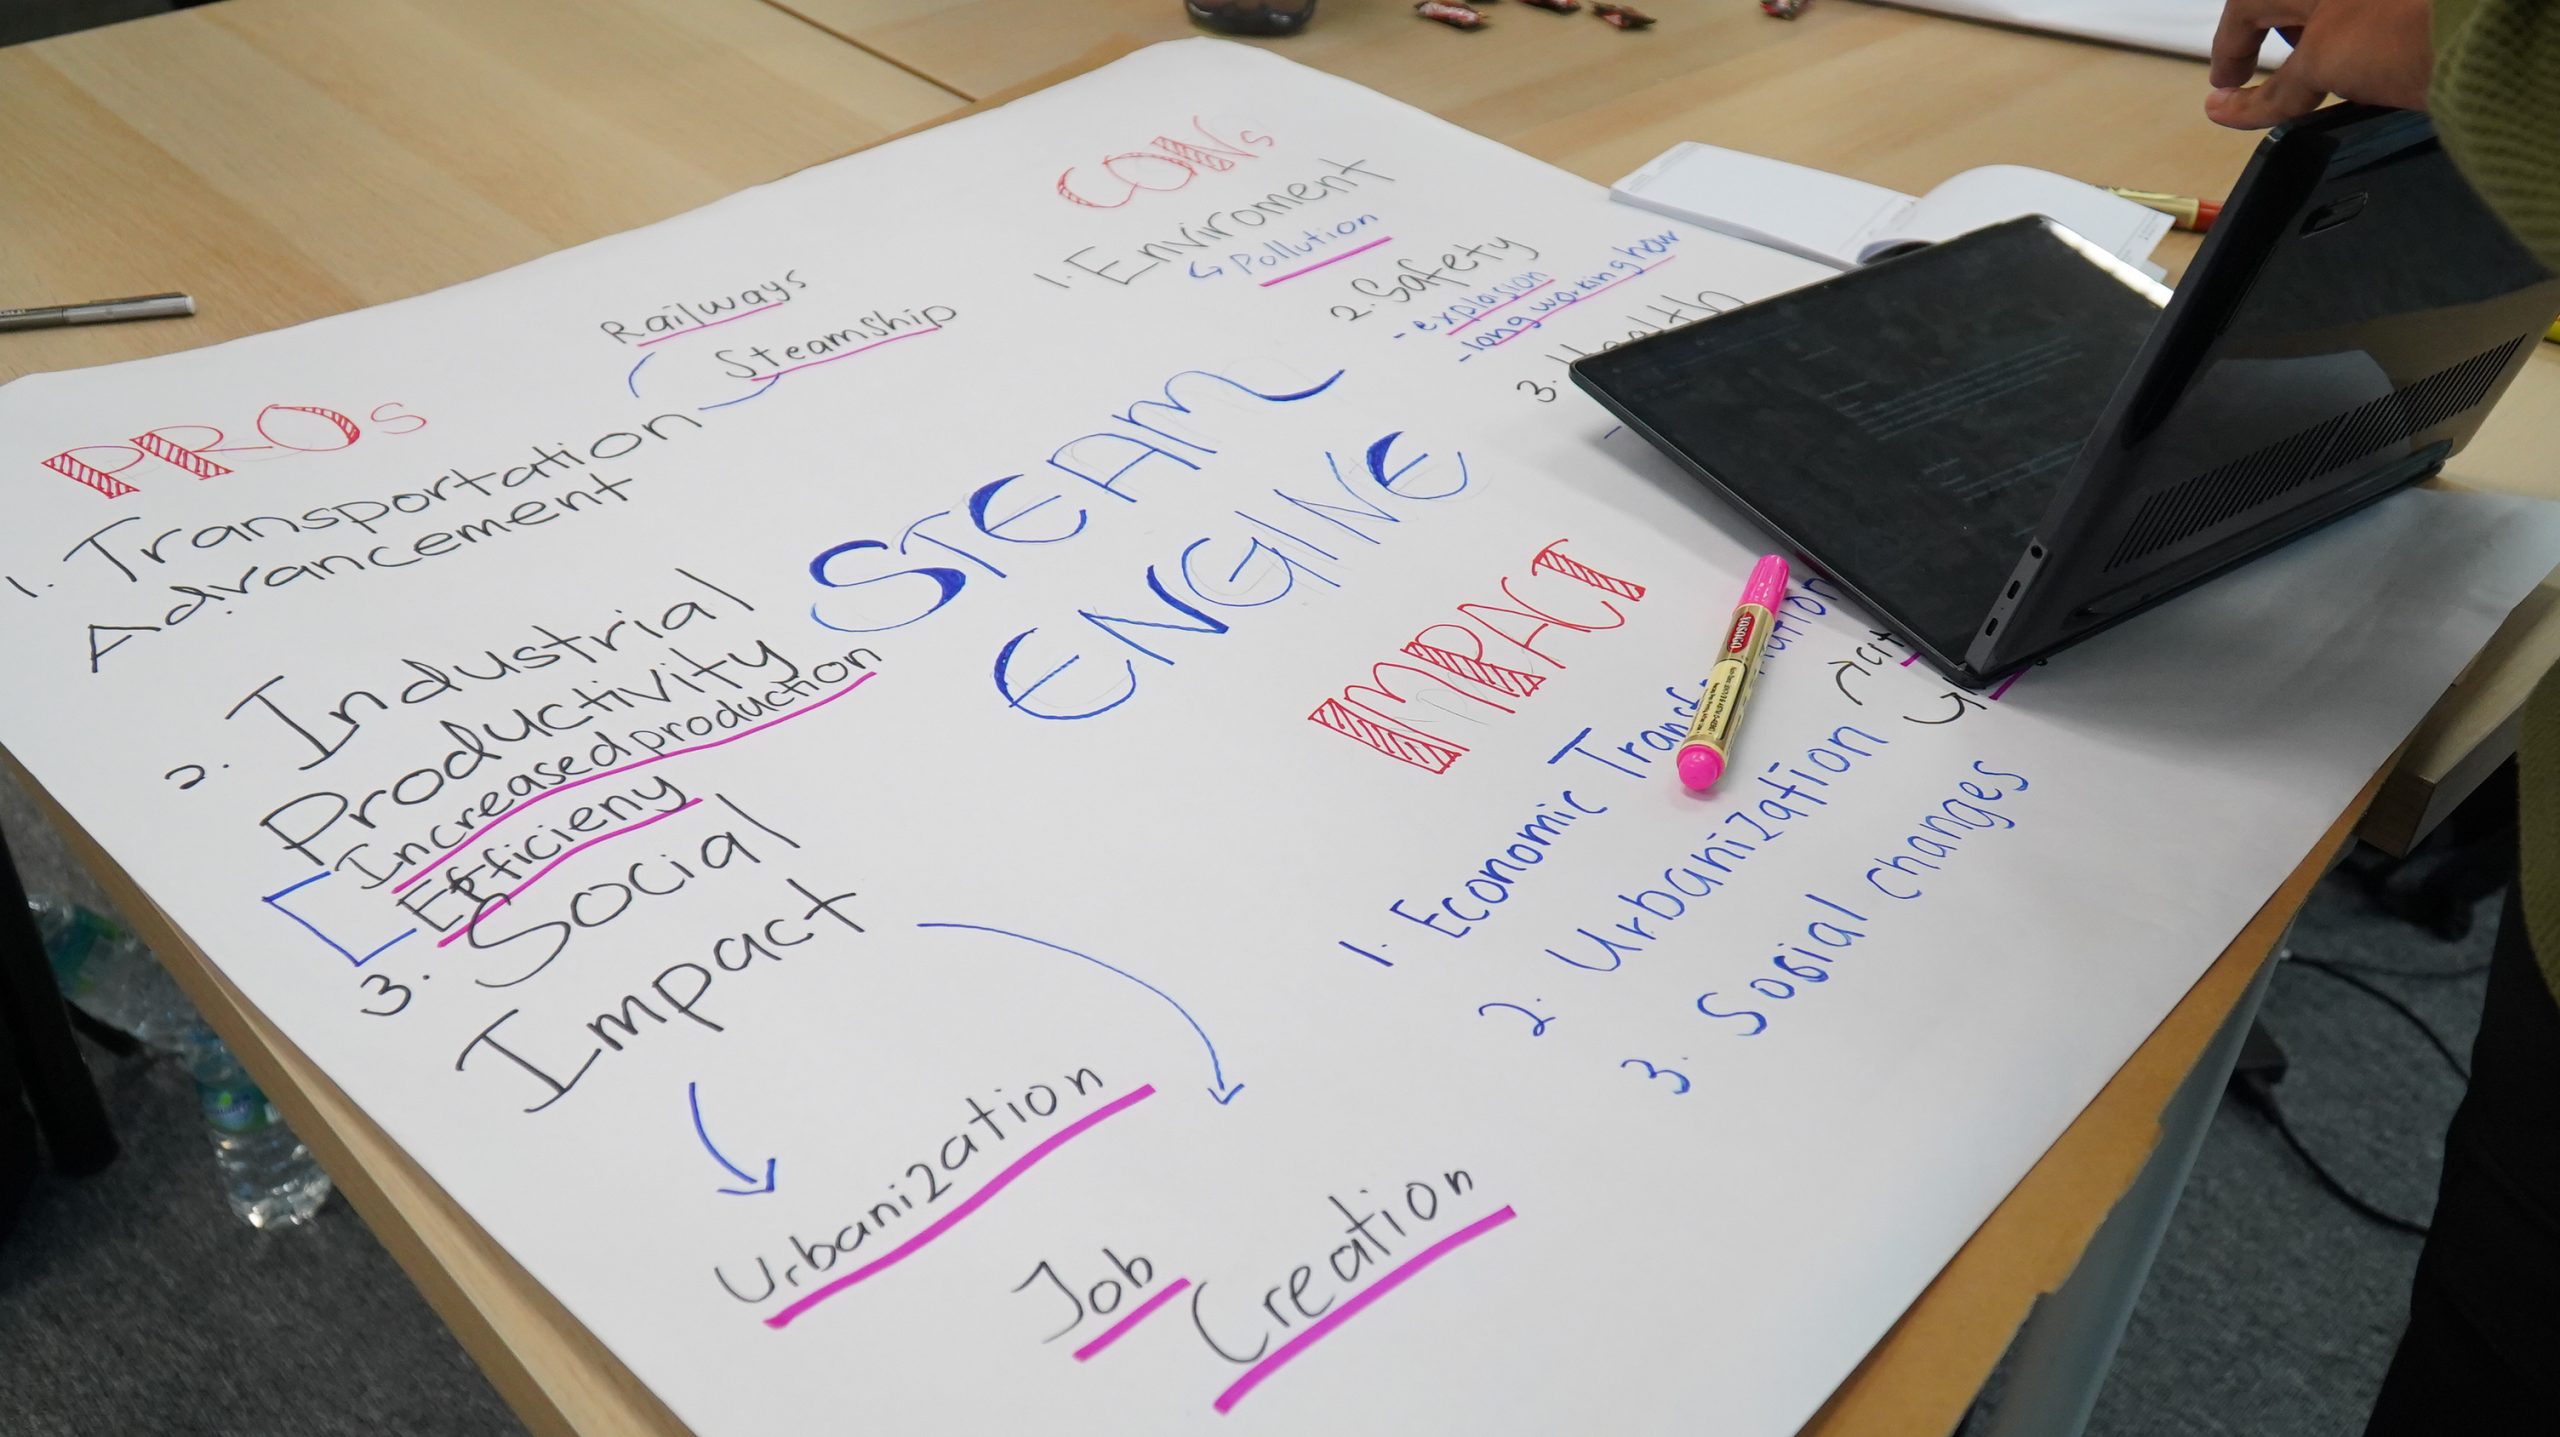 STEAM
ENGINE
PROs
1. Transportation
Advancement
Railways
Steamship
2. Industrial
Productivity
Increased production
Efficieny
3. Social
Impact
Urbanization
Job
Creation
CONs
1. Enviroment
Pollution
2. Safety
- explosion
- long working how
3. Health
IMPACT
1. Economic
2. Urbanization
3. Sosial changes